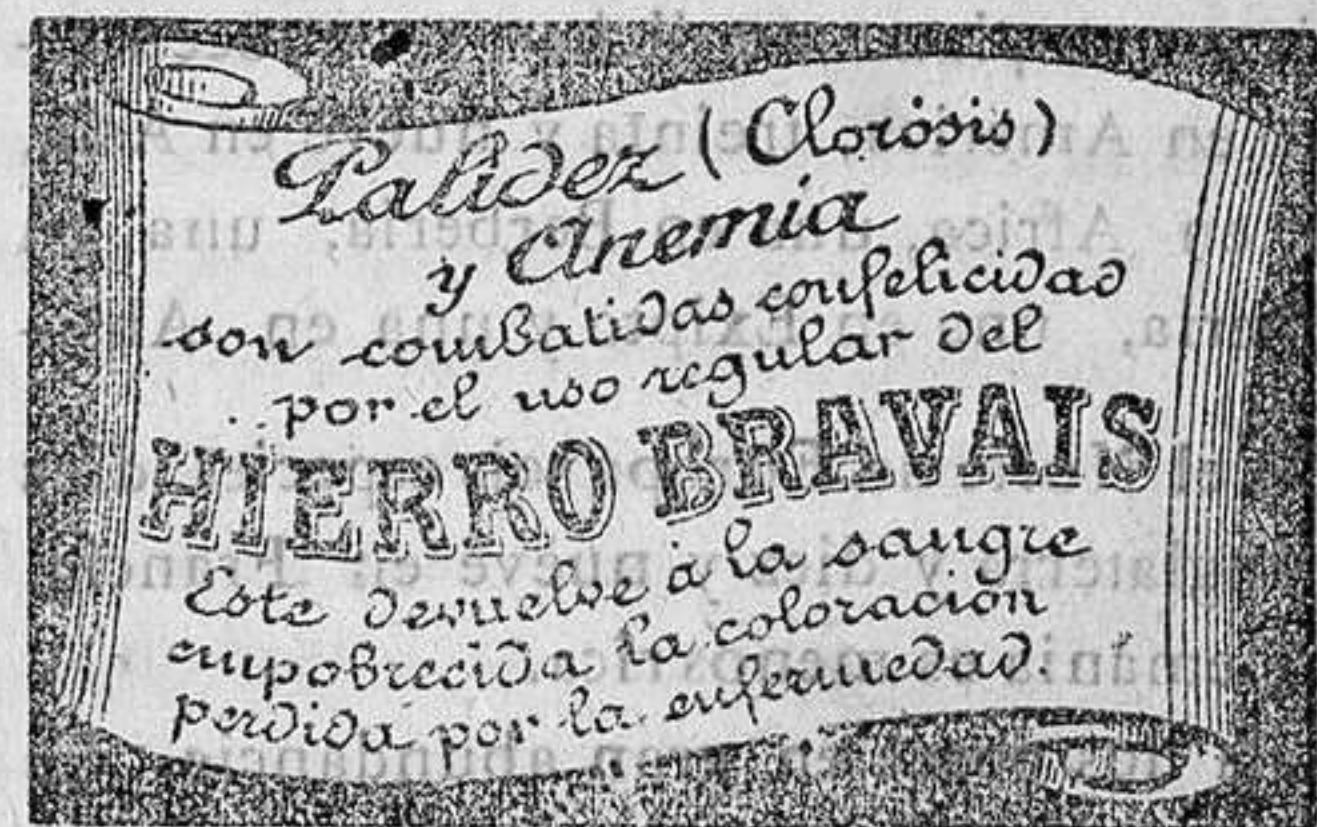 Palidez (Clorósis)
y Anemia
son combatidas con felicidad
por el uso regular del
HIERRO BRAVAIS
Este devuelve á la sangre
empobrecida la coloración
perdida por la enfermedad.